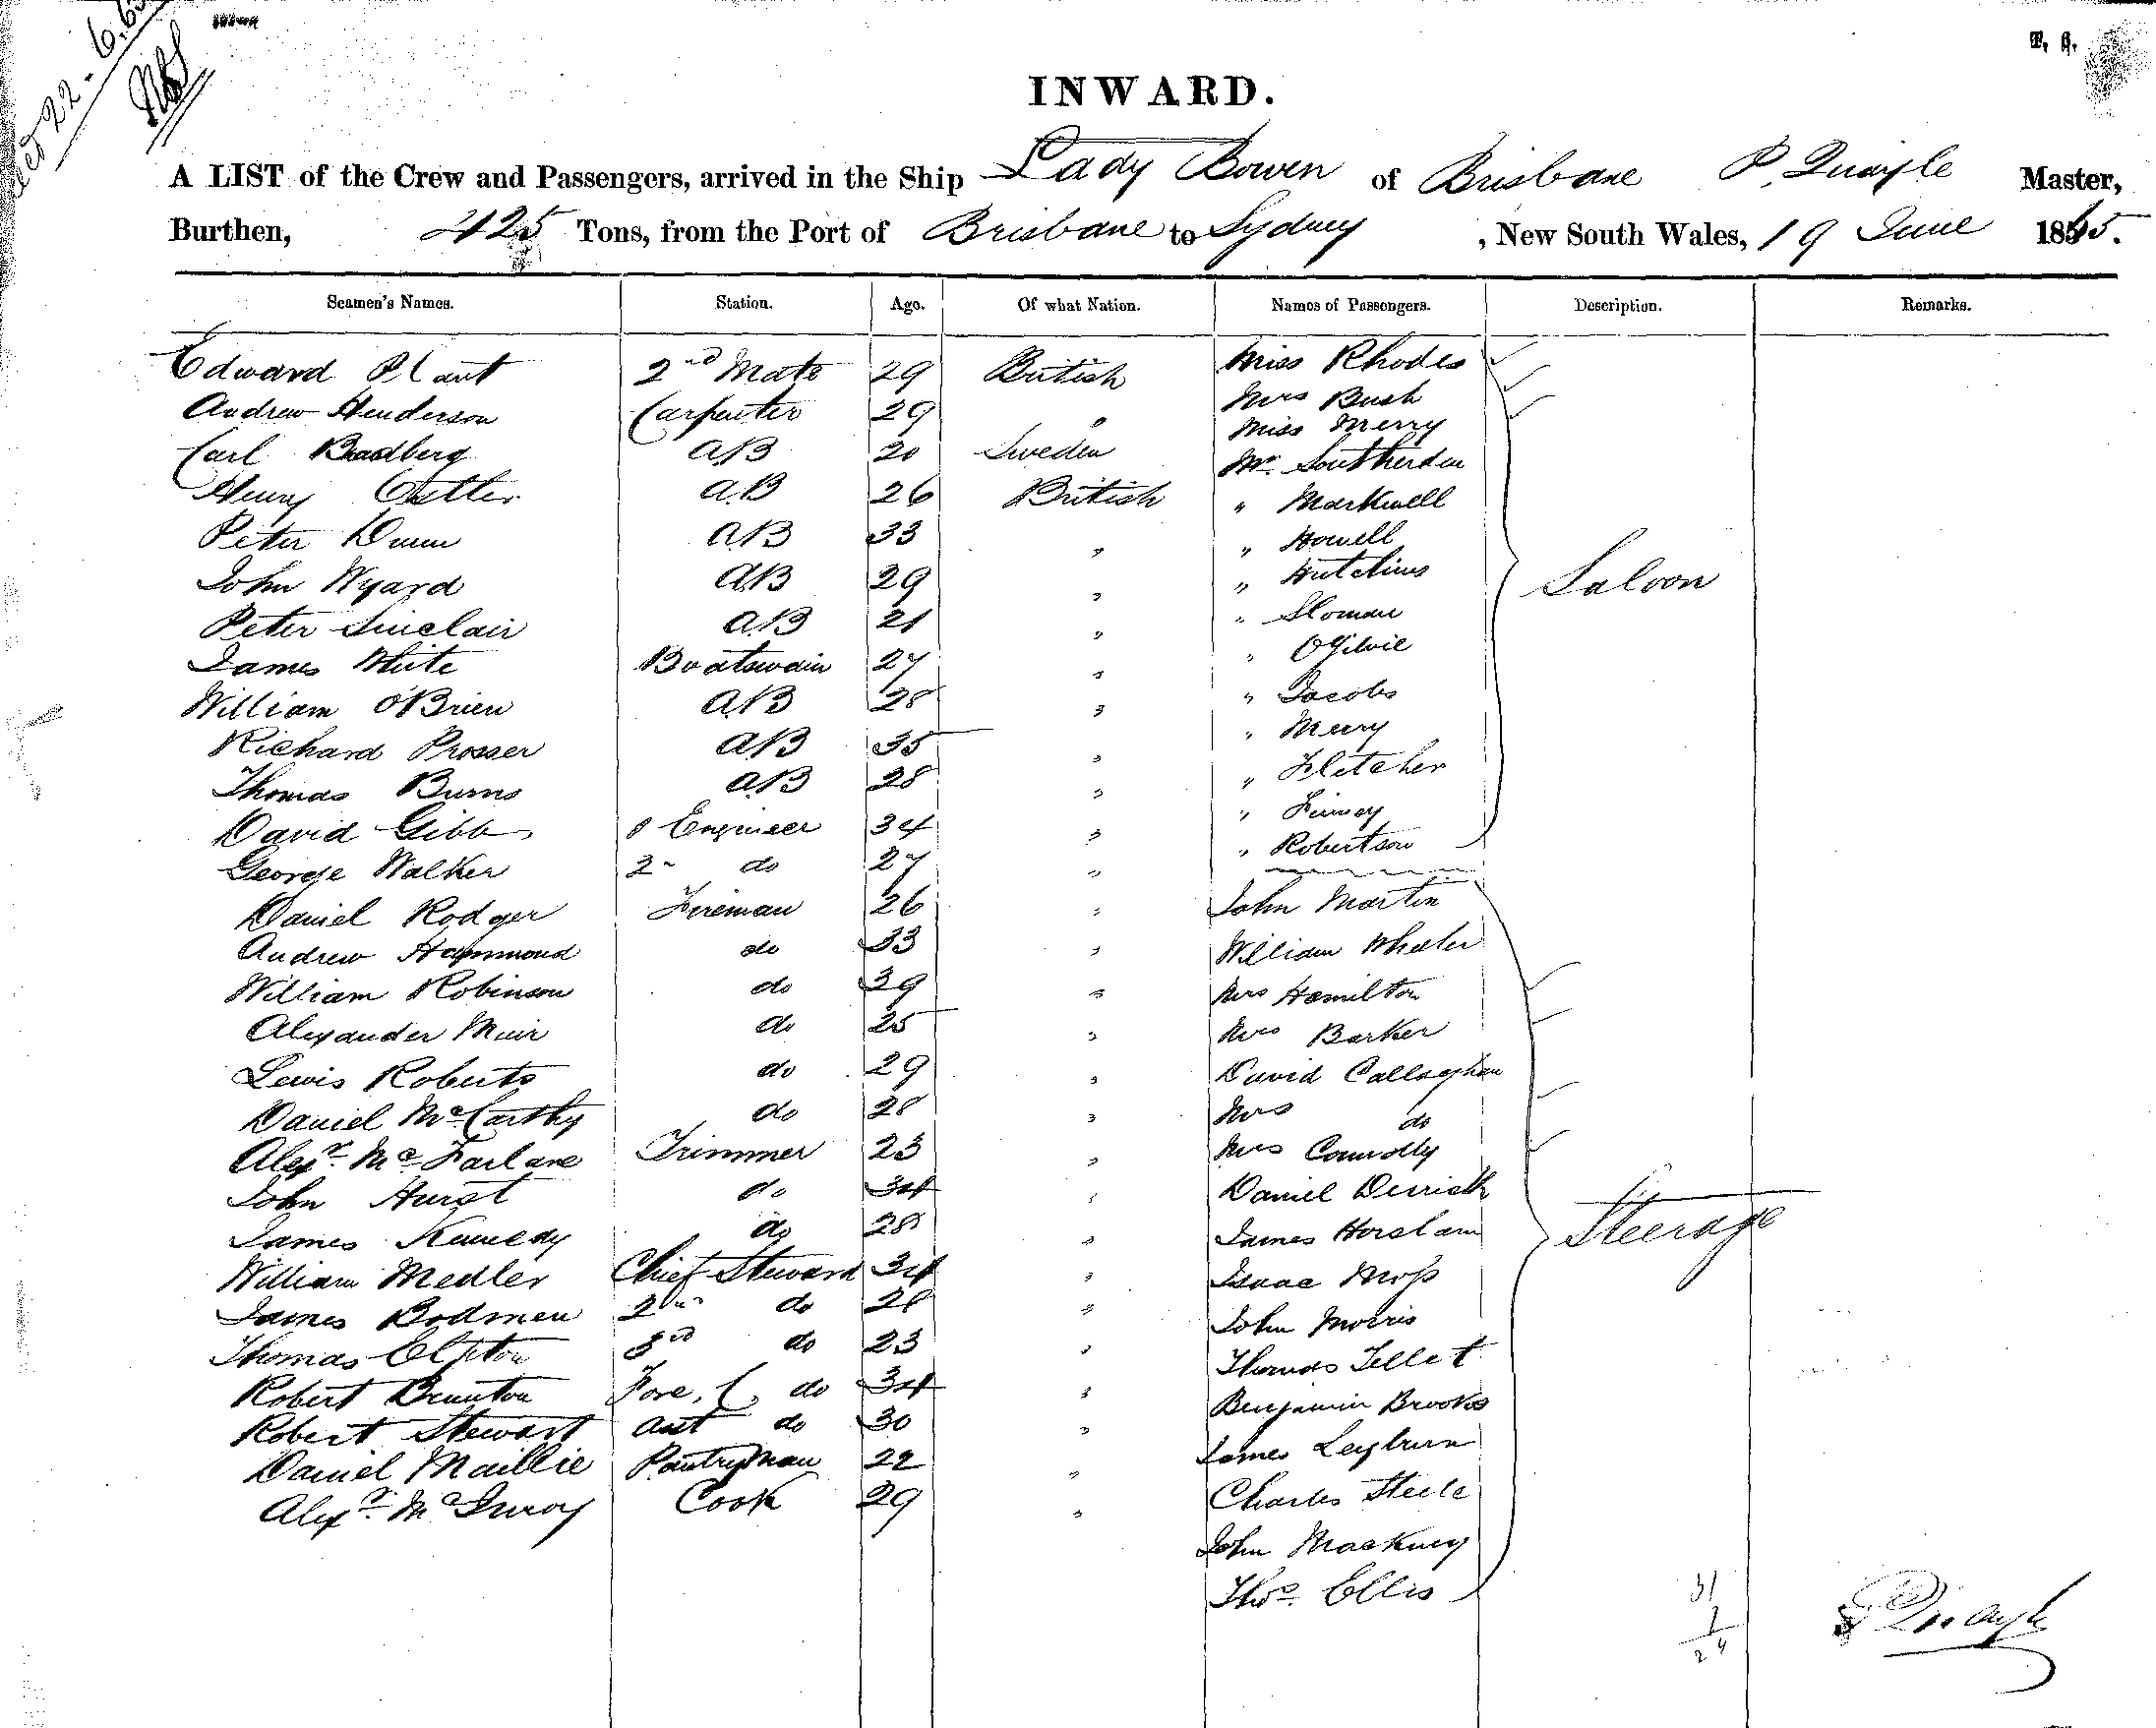 22-6.65
T. B.
INWARD.
A LIST of the Crew and Passengers, arrived in the Ship Lady Bowen of Brisbane P. Quayle Master,
Burthen, 425 Tons, from the Port of Brisbane to Sydney, New South Wales, 19 June 1865.
Seamen's Names. Station. Age. Of what Nation. Names of Passengers. Description. Remarks.
Edward Plant 2nd Mate 29 British Miss Rhodes
Andrew Henderson Carpenter 29 " Mrs Bush
Miss Merry
Carl Bradberg AB 20 Sweden Mr. Southerden
Henry AB 26 British " Markwell
Peter Dunn AB 33 " " Howell
John Wyard AB 29 " " Hutchins Saloon
Peter Sinclair AB 21 " " Sloman
James White Boatswain 27 " " Ogilvie
William O'Brien AB 28 " " Jacobs
Richard Prosser AB 35 " " Merry
Thomas Burns AB 28 " " Fletcher
David Gibb 1 Engineer 34 " " Finney
George Walker 2" do 27 " " Robertson
Daniel Rodger Fireman 26 " John Martin
Andrew Hammond do 33 " William Wheeler
William Robinson do 39 " Mrs Hamilton
Alexander Muir do 25 " Mrs Barker
Lewis Roberts do 29 " David Callaghan
Daniel McCarthy do 28 " Mrs do
Alexr. McFarlane Trimmer 23 " Mrs Connolly
John Hurst do 34 " Daniel
James Kennedy do 28 " James Horsham Steerage
William Medler Chief Steward 34 " Isaac Moss
James Bodmen 2nd do 28 " John Morris
Thomas Clifton 3rd do 23 " Thomas Tellet
Robert Brunton Fore. C. do 34 " Benjamin Brookes
Robert Stewart asst do 30 " James Leyburn
Daniel Maillie Pantryman 22 " Charles Steele
Alexr. McIlwroy Cook 29 " John Mackney
Thos. Ellis
31
7
24
P Quayle